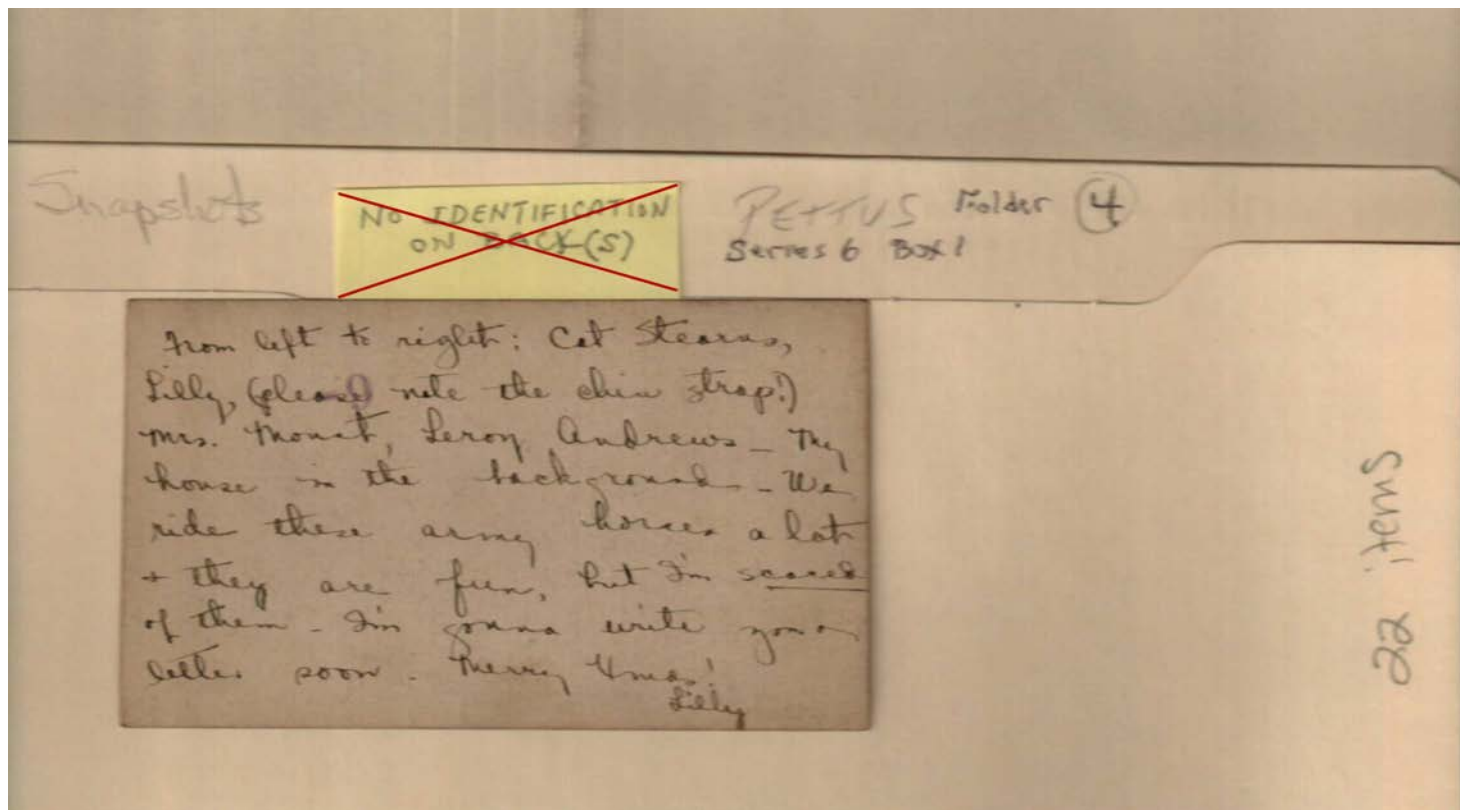 Snapshots
NO IDENTIFICATION
ON BACK(S)
PETTUS Folder 4
Series 6 Box 1
From left to right: Cat Stearns,
Lilly, (please note the chin strap!)
Mrs. Mount, Leroy Andrews - My
house in the background - We
ride these army horses a lot
+ they are fun, but I'm scared
of them - I'm gonna write you a
letter soon. Merry Xmas!
Lilly
22 items